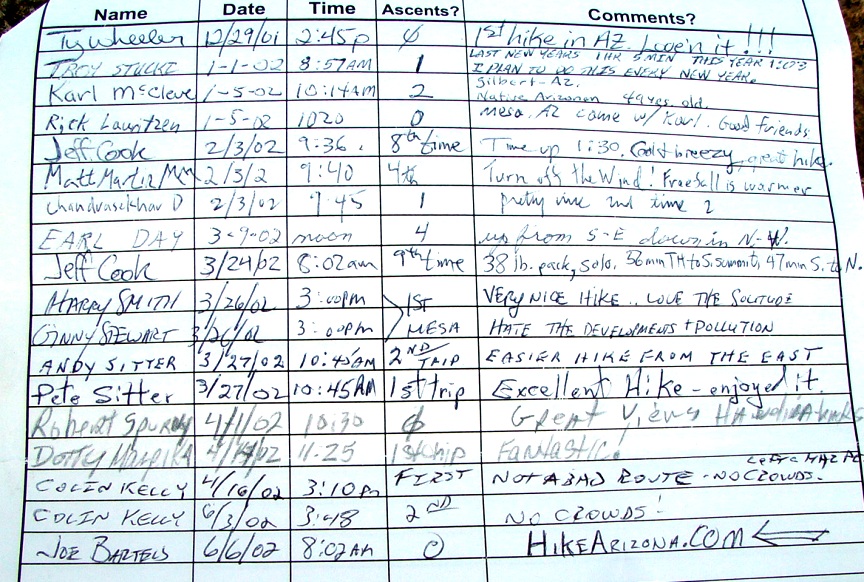 Name Date Time Ascents? Comments?
Ty Wheeler 12/29/01 2:45p 0 1st hike in AZ. Love'n it!!!
LAST NEW YEARS 1HR 5MIN THIS YEAR 1:03
TROY STUCKI 1-1-02 8:57AM 1 I PLAN TO DO THIS EVERY NEW YEAR.
Gilbert-AZ.
Karl McCleve 1-5-02 10:14AM 2 Native Arizonan 49 yrs. old.
Rick 1-5-02 1020 0 Mesa, AZ came w/ Karl. Good friends
Jeff Cook 2/3/02 9:36. 8th time Time up 1:30. Cold breezy, great hike.
Matt Martin 2/3/2 9:40 4th Turn off the Wind! Freefall is warmer
Chandrasekhar D 2/3/02 9:45 1 pretty nice 2nd time
EARL DAY 3-9-02 noon 4 up from S-E down in N-W.
Jeff Cook 3/24/02 8:02am 9th time 38 lb. pack, solo. 56min TH to S. summit, 47min S. to N.
HARRY SMITH 3/26/02 3:00pm 1ST VERY NICE HIKE.. LOVE THE SOLITUDE
GINNY STEWART 3/26/02 3:00pm MESA HATE THE DEVELOPMENTS + POLLUTION
ANDY SITTER 3/27/02 10:45AM 2ND TRIP EASIER HIKE FROM THE EAST
Pete Sitter 3/27/02 10:45AM 1st trip Excellent Hike - enjoyed it.
Robert 4/1/02 10:30 0 Great Views
Dotty 11:25 Fantastic!
COLIN KELLY 4/16/02 3:10pm FIRST NOT A BAD ROUTE - NO CROWDS.
COLIN KELLY 6/3/02 3:48 2ND NO CROWDS!
JOE BARTELS 6/6/02 8:02AM 0 HIKEARIZONA.COM